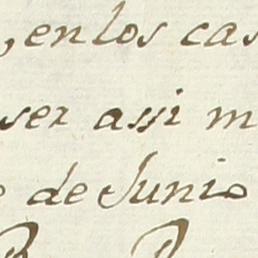 , en los cas
ser assi m
de Junio